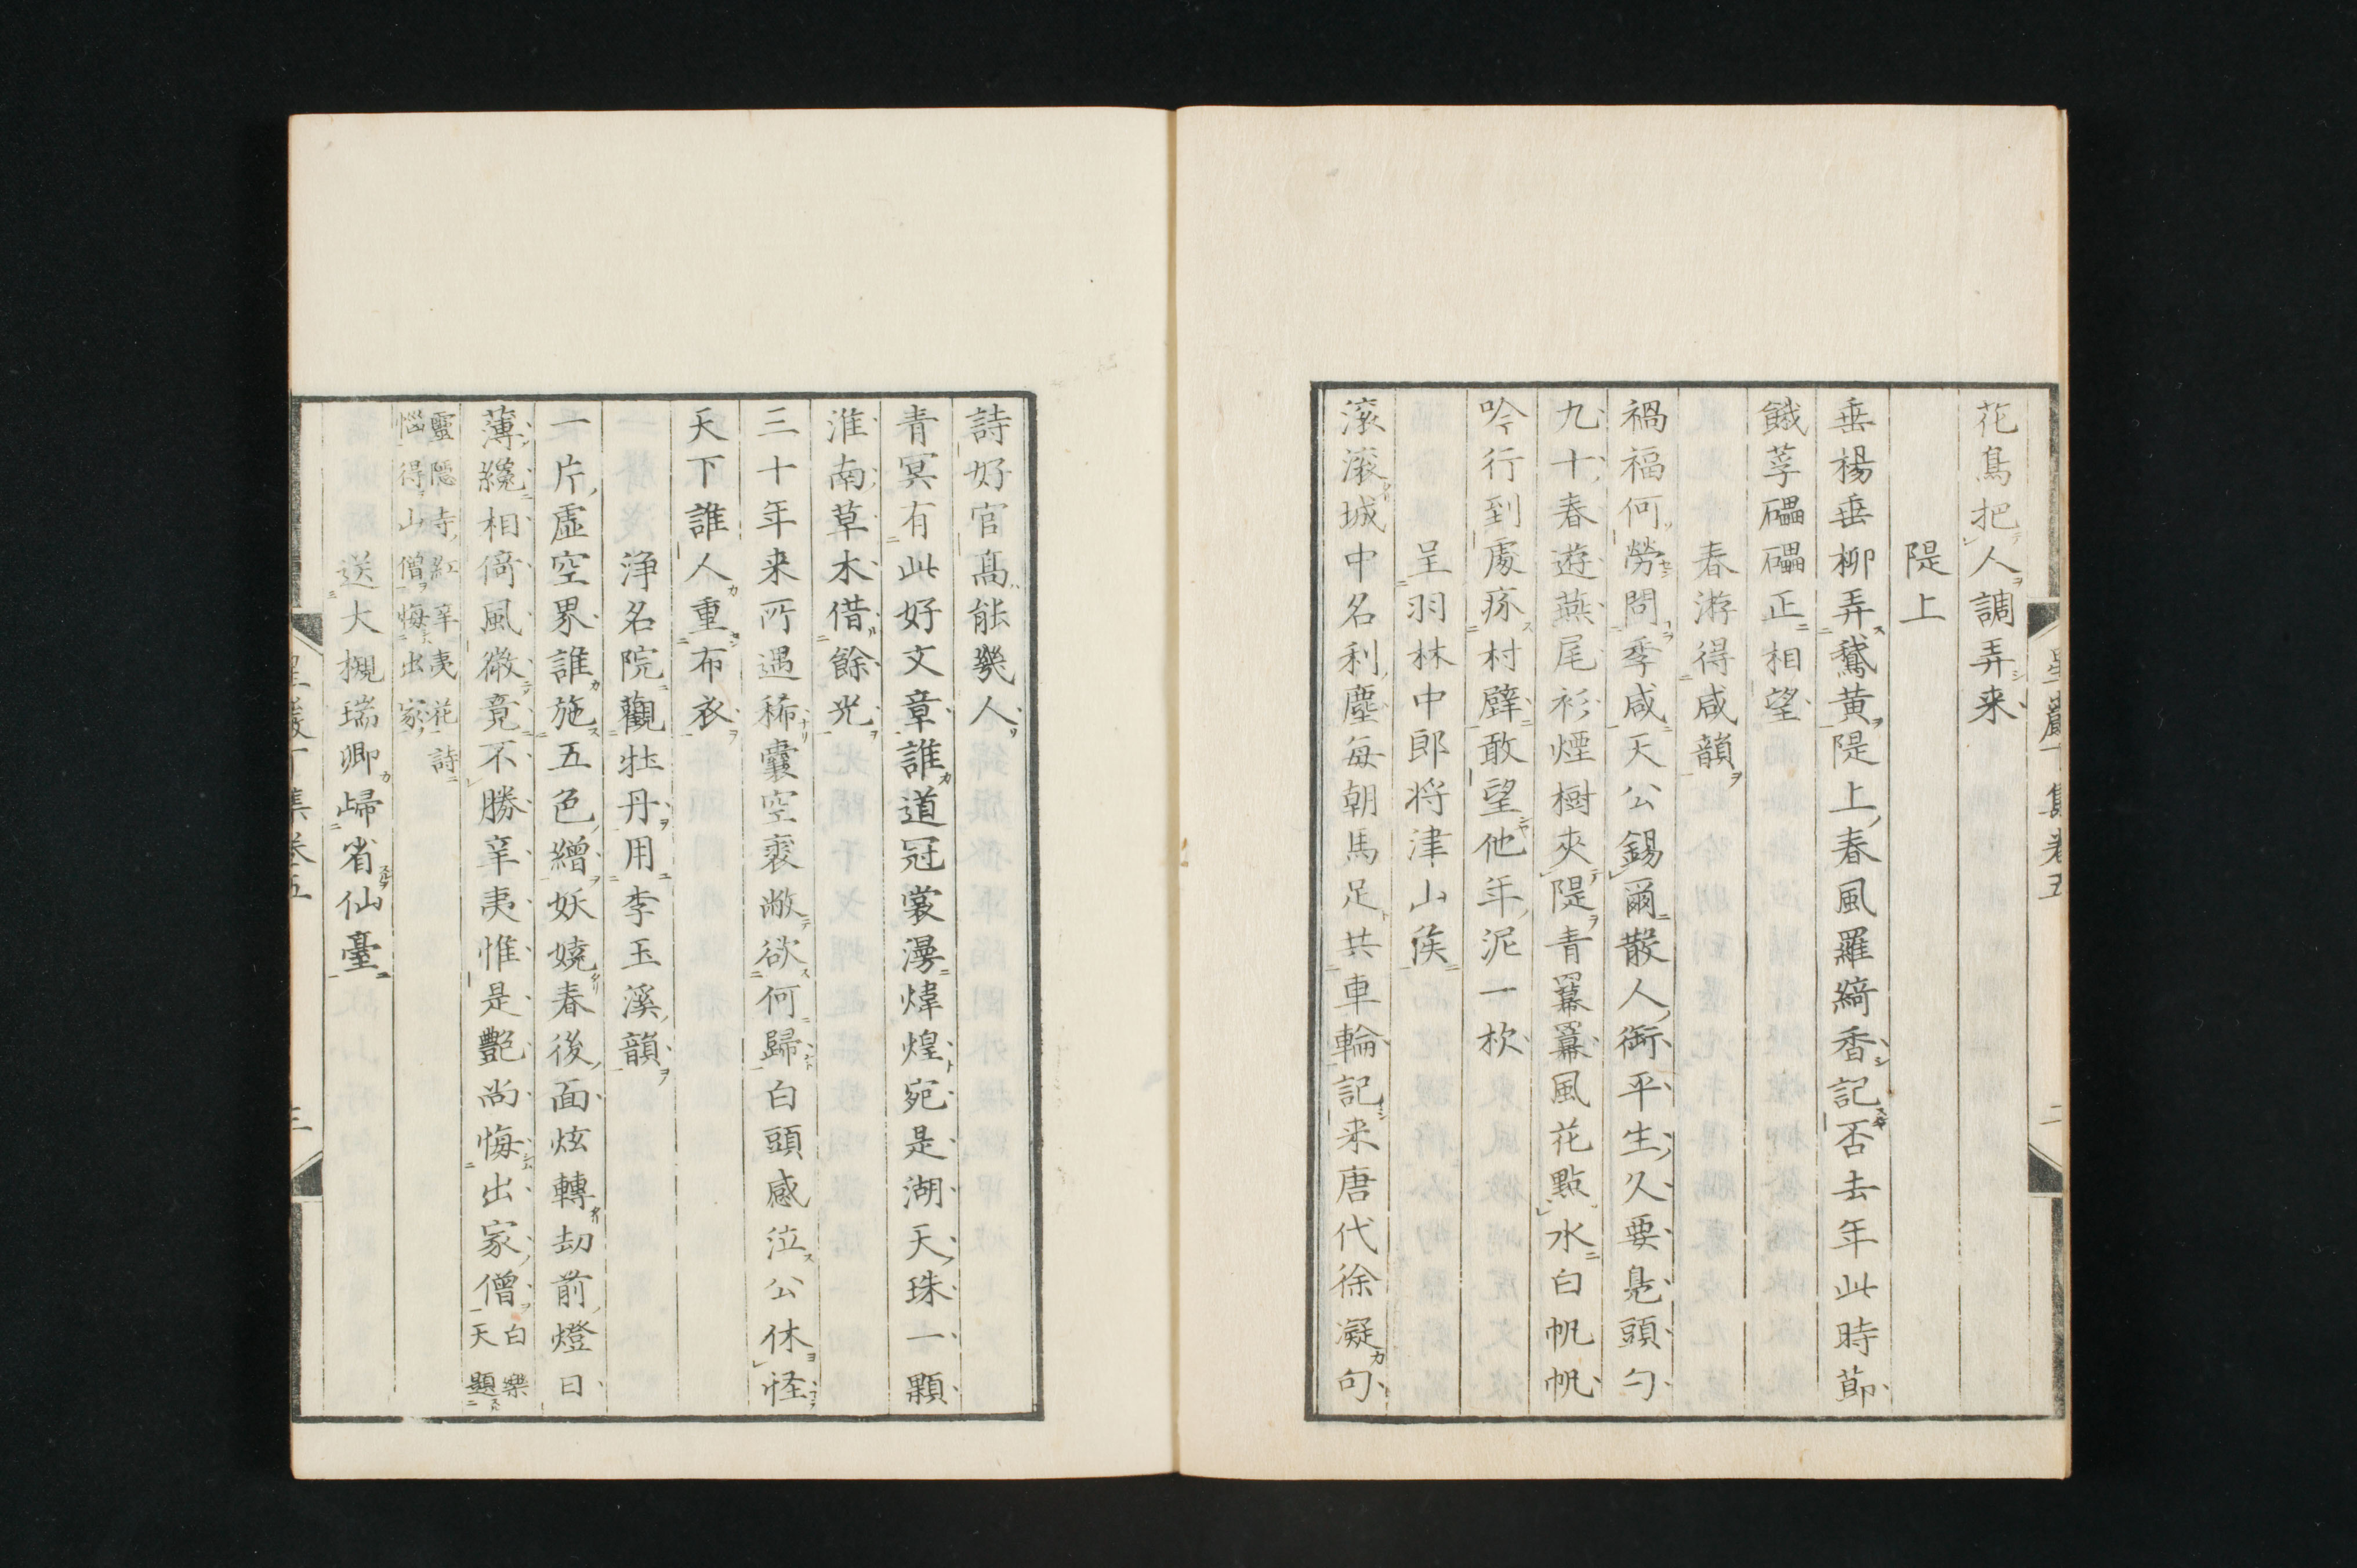 花鳥把人調弄来
隄上
垂楊垂柳弄鵞黄隄上春風羅綺香記否去年此時節
餓莩礧礧正相望
春游得咸韻
禍福何勞問季咸天公錫爾散人銜平生久要是頭勺
九十春遊燕尾衫煙樹夾隄青羃羃風花點水白帆帆
吟行到處疥村壁敢望他年泥一杴
呈羽林中郎将津山矦
滚滚城中名利塵毎朝馬足共車輪記来唐代徐凝句
星巖丁集卷五
二
詩好官髙能幾人
青冥有此好文章誰道冠裳漫煒煌宛是湖天珠一顆
淮南草木借餘光
三十年来所遇稀囊空裘敝欲何歸白頭感泣公休怪
天下誰人重布衣
浄名院觀牡丹用李玉溪韻
一片虚空界誰施五色繒妖嬈春後面炫轉劫前燈日
薄纔相倚風微竟不勝辛夷惟是艷尚悔出家僧白樂天題
靈隠寺紅辛夷花詩
惱得山僧悔出家
送大槻瑞卿歸省仙臺
星巖丁集卷五
三